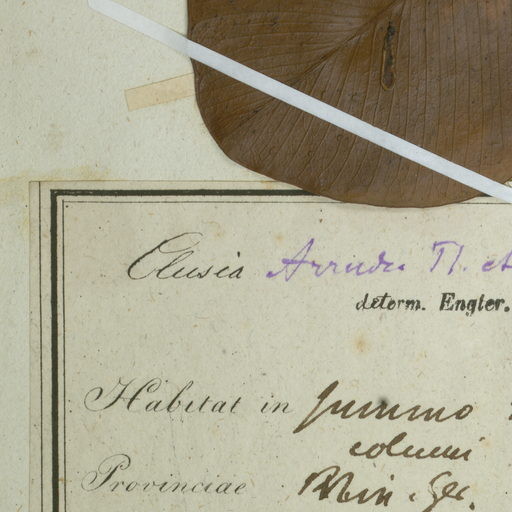 Clusia Arrudea Tl. et
determ. Engler.
Habitat in summo
Provinciae Min. Ger.